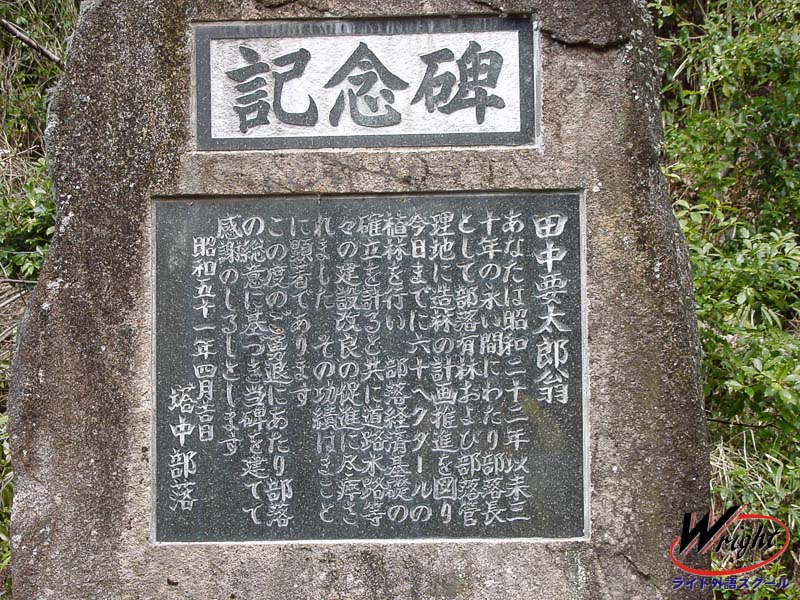 記念碑
田中要太郎翁
あなたは昭和二十二年以来三
十年の永い間にわたり部落長
として部落有林および部落管
理地に造林の計画推進を図り
今日までに六十ヘクタールの
植林を行い 部落経済基礎の
確立を計ると共に道路水路等
々の建設改良の促進に尽瘁さ
れました その功績はまこと
に顕著であります
この度のご勇退にあたり部落
の総意に基づき当碑を建てて
感謝のしるしとします
昭和五十一年四月吉日
塔中部落
Wright
ライト外語スクール